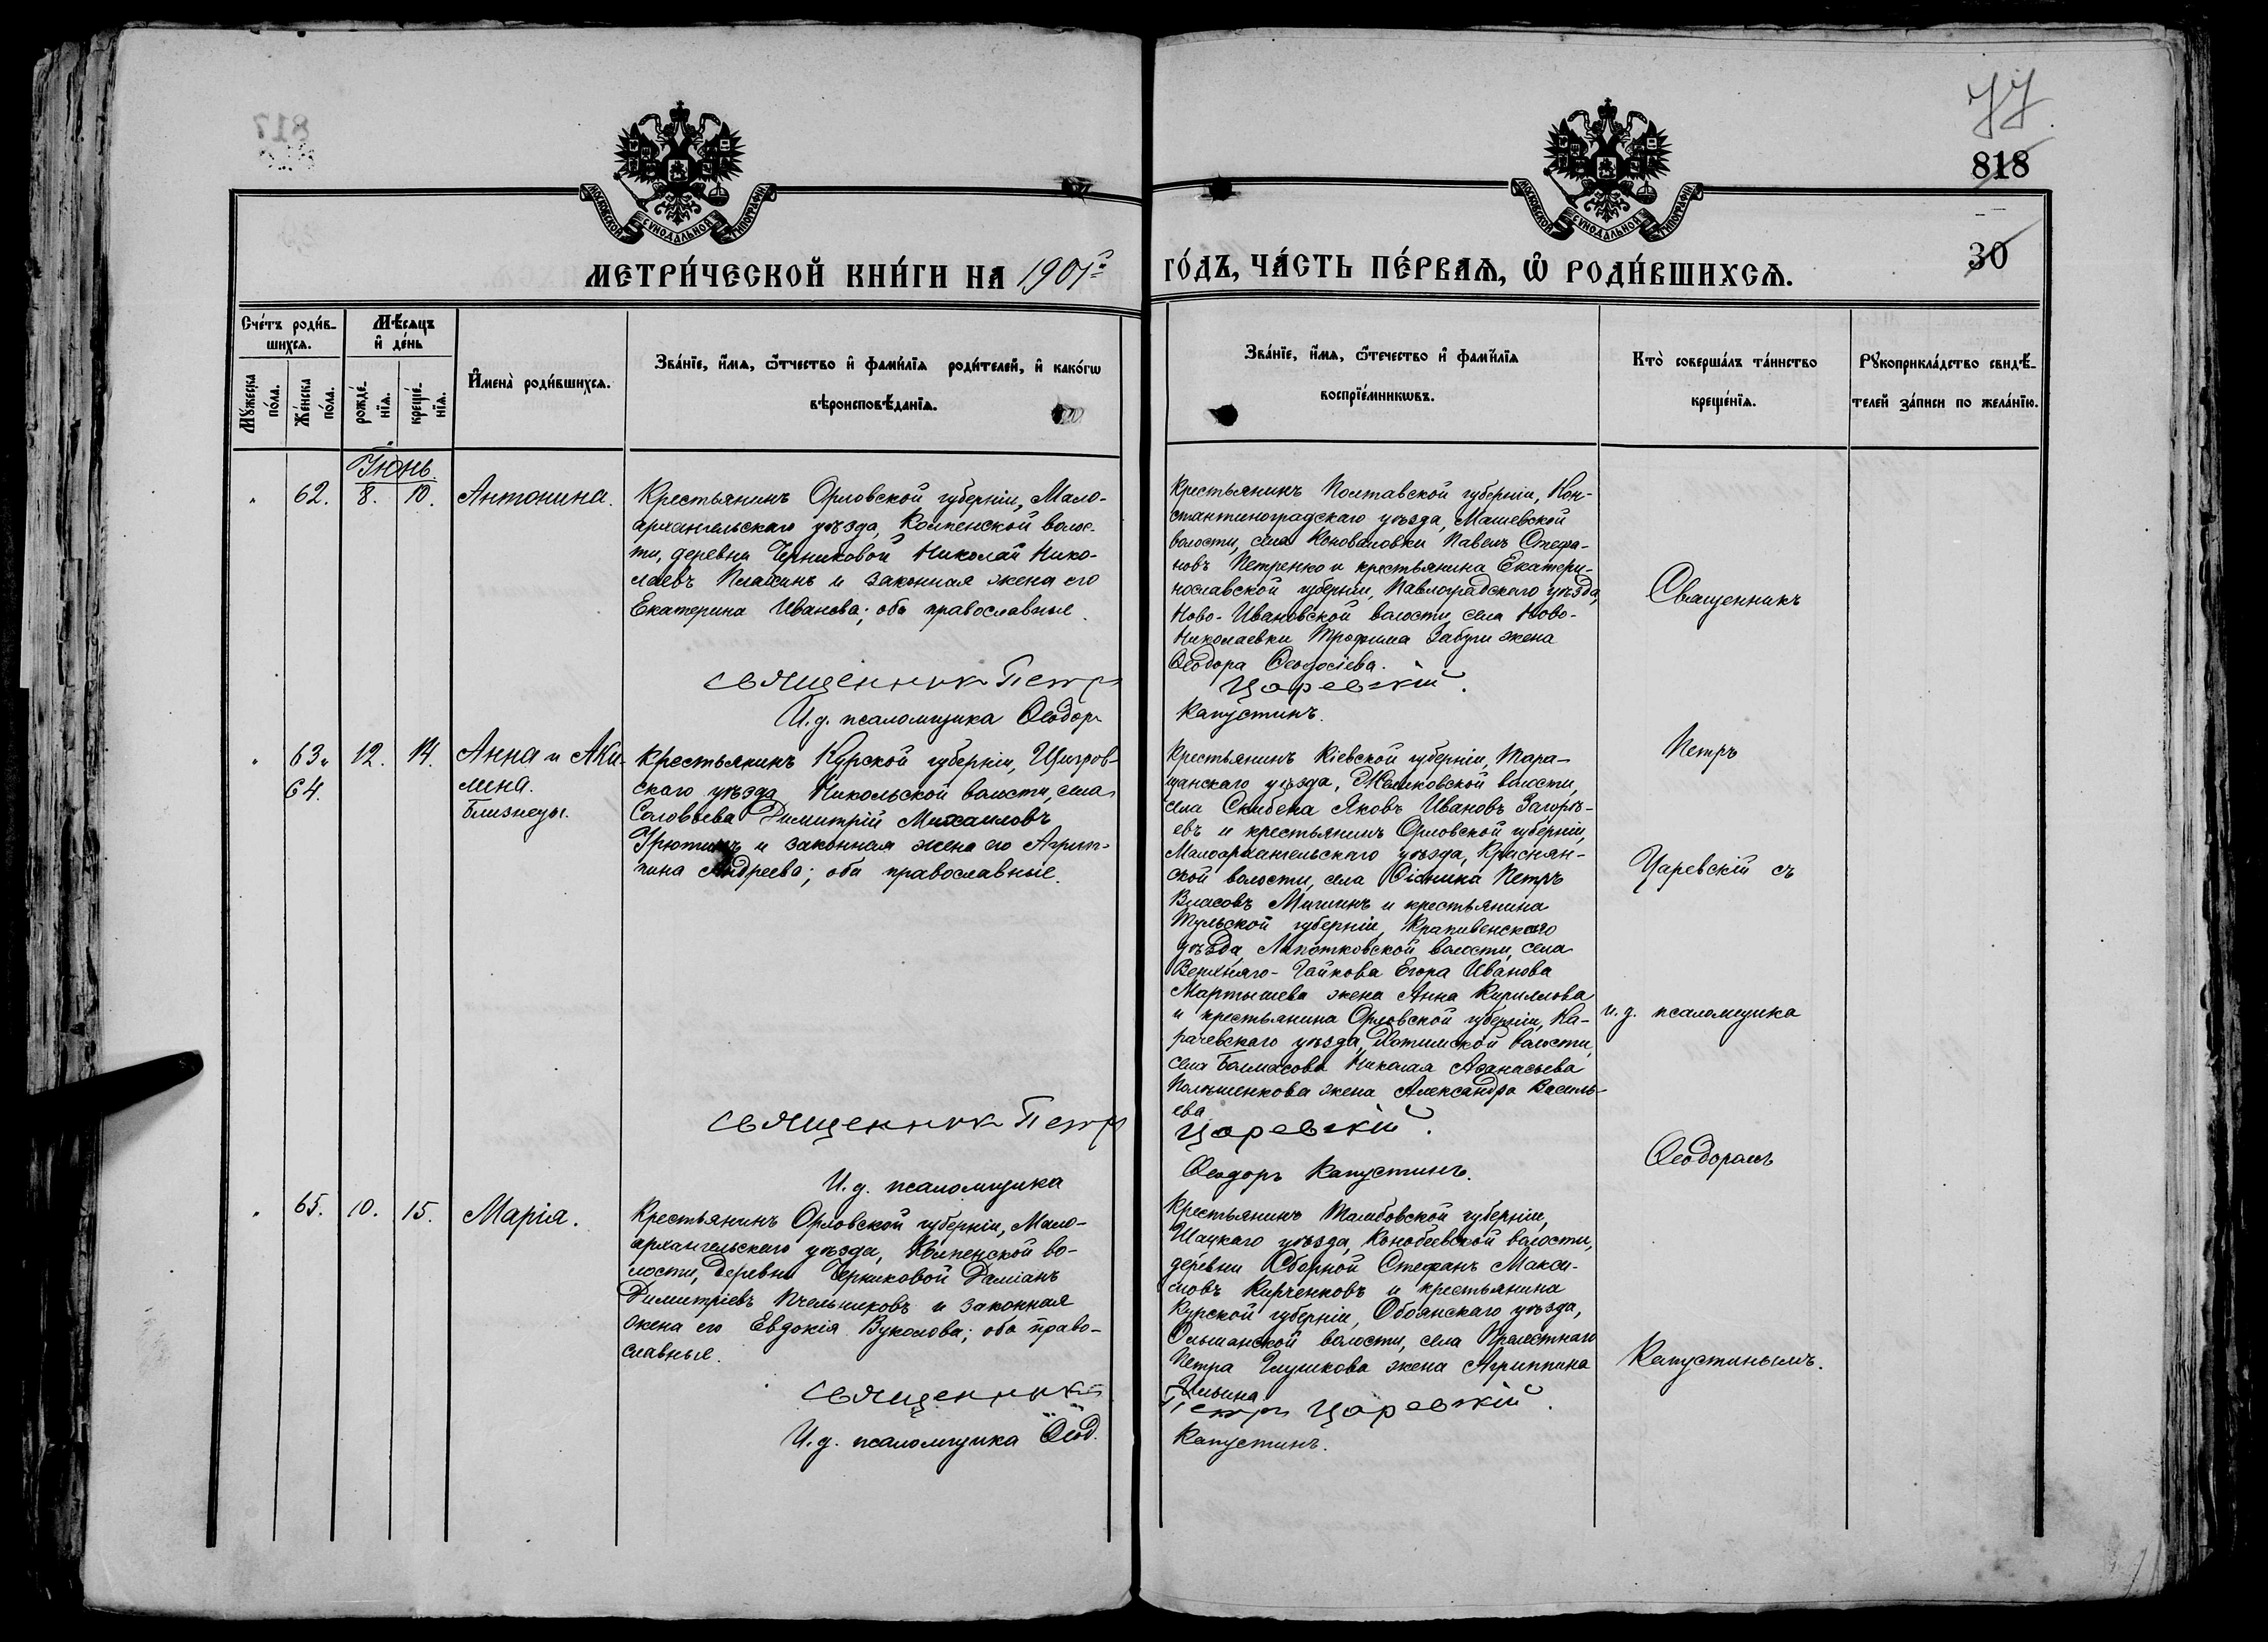 817
77.
818
30
МОСКОВСКОЙ СѴНОДАЛЬНОЙ ТИПОГРАФІИ
МОСКОВСКОЙ СѴНОДАЛЬНОЙ ТИПОГРАФІИ
МЕТРИ́ЧЕСКОЙ КНИ́ГИ НА 1901й
ГО́ДЪ, ЧА́СТЬ ПЕ́РВАѦ, Ѡ҆ РОДИ́ВШИХСѦ.
Сче́тъ роди́в-
шихсѧ.
Мѣ́сѧцъ
и҆ де́нь
Мꙋ́жеска
по́ла.
Же́нска
по́ла.
рожде́-
нїѧ.
креще́-
нїѧ.
И҆мена̀ роди́вшихсѧ.
Зва́нїе, и҆́мѧ, ѻ҆́тчество и҆ фами́лїѧ роди́телей, и҆ како́гѡ
вѣроисповѣ́данїѧ.
Зва́нїе, и҆́мѧ, ѻ҆́течество и҆ фами́лїѧ
воспрїе́мникѡвъ.
Кто̀ соверша́лъ та́инство
креще́нїѧ.
Рꙋкоприкла́дство свидѣ́-
телей за́писи по жела́нїю.
Іюнь.
" 62. 8. 10. Антонина.
Крестьянинъ Орловской губерніи, Мало-
архангельскаго уѣзда, Колпенской волос-
ти, деревни Черниковой Николай Нико-
лаевъ и законная жена его
Екатерина Иванова; оба православные.
Священникъ Петръ
И.д. псаломщика Ѳеодоръ
Крестьянинъ Полтавской губерніи, Кон-
стантиноградскаго уѣзда, Машевской
волости, села Коноваловки Павелъ Стефа-
новъ Петренко и крестьянина Екатери-
нославской губерніи, Павлоградскаго уѣзда,
Ново-Ивановской волости, села Ново-
Николаевки Трофима Забуги жена
Ѳеодора Ѳеодосіева.
Царевскій.
Капустинъ.
" 63 и 12. 14. Анна и Аки-
64. лина.
Близнецы.
Крестьянинъ Курской губерніи, Щигров-
скаго уѣзда, Никольской волости, села
Соловьева Димитрій Михаиловъ
и законная жена его Агрип-
пина Андреева; оба православные.
Священникъ Петръ
И.д. псаломщика
Крестьянинъ Кіевской губерніи, Тара-
щанскаго уѣзда, Жашковской волости,
села Скибена Яковъ Ивановъ Загорѣ-
евъ и крестьянинъ Орловской губерніи,
Малоархангельскаго уѣзда, Краснян-
ской волости, села Петръ
Власовъ Мишинъ и крестьянина
Тульской губерніи, Крапивенскаго
уѣзда, Лапотковской волости, села
Верхняго-Гайкова Егора Иванова
Мартышева жена Анна Кириллова
и крестьянина Орловской губерніи, Ка-
рачевскаго уѣзда, волости,
села Балмасова Николая Аѳанасьева
жена Александра Василь-
ева
Царевскій.
Ѳеодоръ Капустинъ.
" 65. 10. 15. Марія.
Крестьянинъ Орловской губерніи, Мало-
архангельскаго уѣзда, Колпенской во-
лости, деревни Черниковой Даміанъ
Димитріевъ Пчельниковъ и законная
жена его Евдокія Вуколова; оба право-
славные.
Священникъ
И.д. псаломщика Ѳеод.
Крестьянинъ Тамбовской губерніи,
Шацкаго уѣзда, Конобеевской волости,
деревни Сборной Стефанъ Макси-
мовъ Кирченковъ и крестьянина
Курской губерніи, Обоянскаго уѣзда,
Ольшанской волости, села Прелестнаго
Петра Глушкова жена Агриппина
Ильина
Петръ Царевскій.
Капустинъ.
Священникъ
Петръ
Царевскій съ
и.д. псаломщика
Ѳеодоромъ
Капустинымъ.